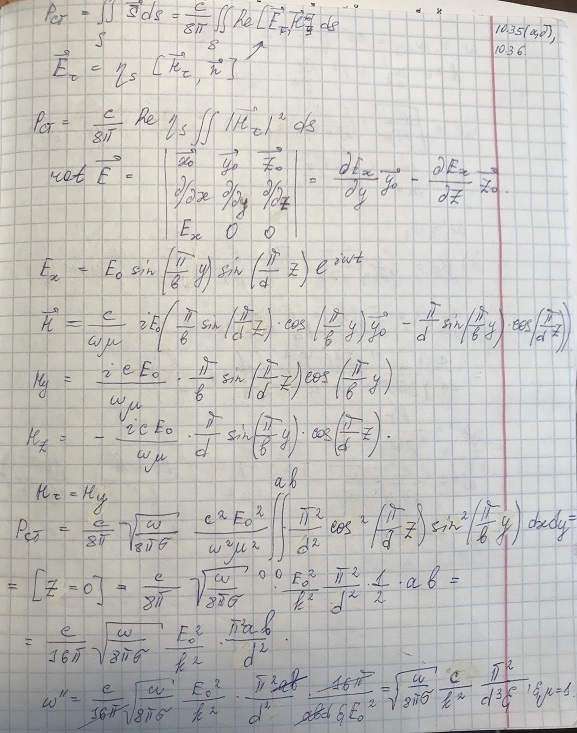 P_ст = ∬_S S⃗ ds = c/8π ∬_S Re [E⃗_τ, H⃗_τ*] ds
10.35(а,б),
10.36.
E⃗_τ = η_s [H⃗_τ, n⃗]
P_ст = c/8π Re η_s ∬ |H⃗_τ|² ds
rot E⃗ = | x⃗₀ y⃗₀ z⃗₀ | = ∂Ex/∂y y⃗₀ - ∂Ex/∂z z⃗₀.
∂/∂x ∂/∂y ∂/∂z
Ex 0 0
Ex = E₀ sin(π/b y) sin(π/d z) e^{iωt}
H⃗ = c/ωμ iE₀(π/b sin(π/d z)·cos(π/b y) y⃗₀ - π/d sin(π/b y)·cos(π/d z))
Hy = icE₀/ωμ · π/b sin(π/d z) cos(π/b y)
Hz = - icE₀/ωμ · π/d sin(π/b y)·cos(π/d z).
H_τ = Hy
P_ст = c/8π √(ω/8πσ) c²E₀²/ω²μ² ∬_{00}^{ab} π²/d² cos²(π/d z) sin²(π/b y) dxdy =
= [z=0] = c/8π √(ω/8πσ) · E₀²/k² π²/d² · 1/2 · ab =
= c/16π √(ω/8πσ) E₀²/k² · π²ab/d² .
ω'' = c/16π √(ω/8πσ) E₀²/k² · π²ab/d² · 16π/abdεE₀² = √(ω/8πσ) c/k² π²/d³ε ; ε,μ=1